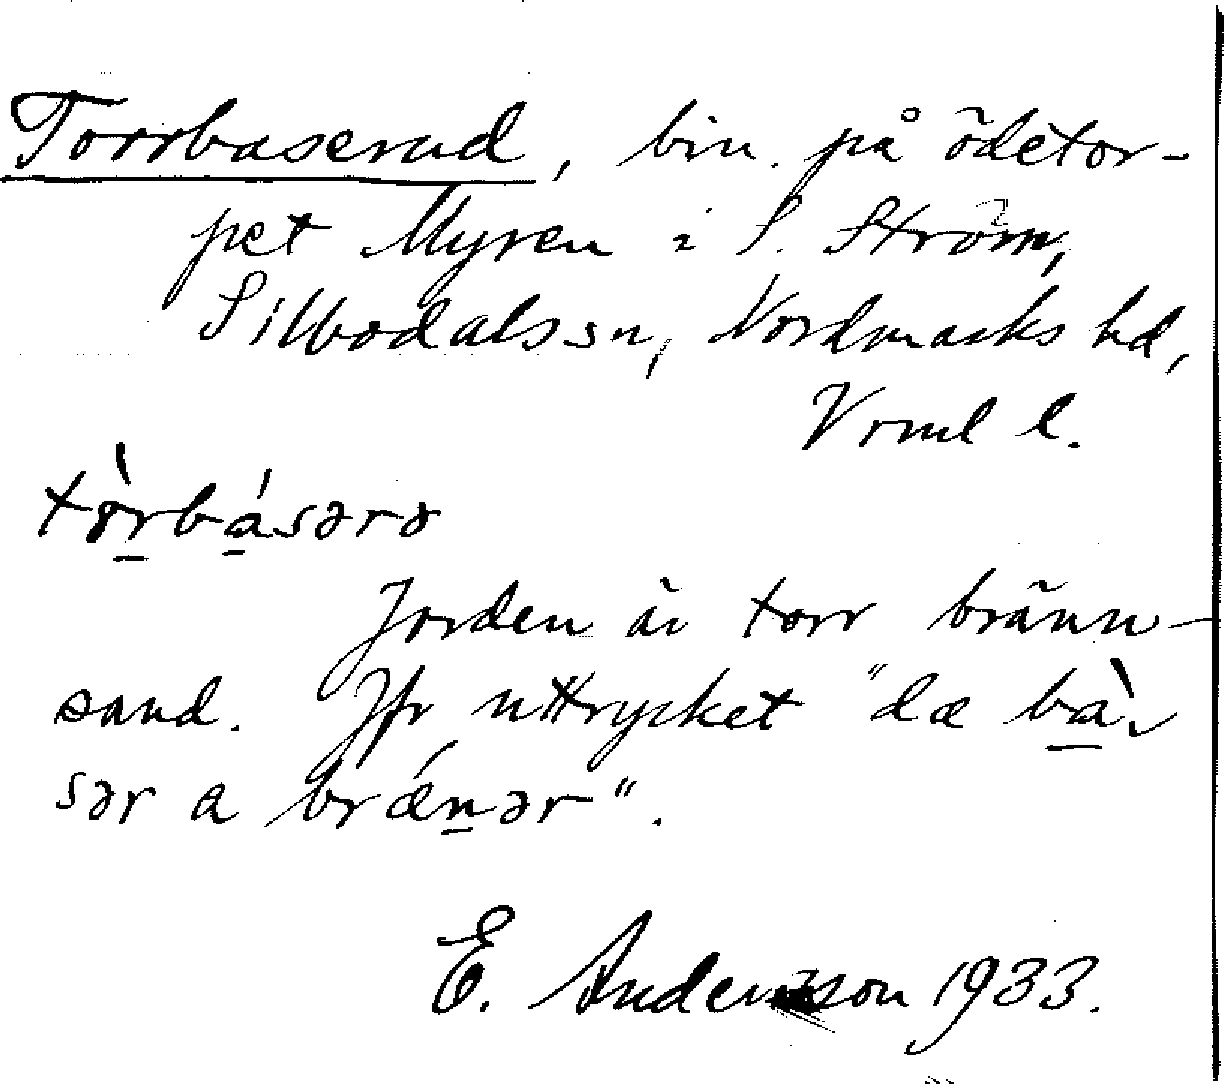 Torrbaserud, bin. på ödetor-
pet Myren i S. Ström,
Silbodals sn, Nordmarks hd,
Vrml l.
tòrbásərɷ
Jorden är torr bränn-
sand. Jfr uttrycket "dæ bà-
sər a brǽnər".
E. Andersson 1933.